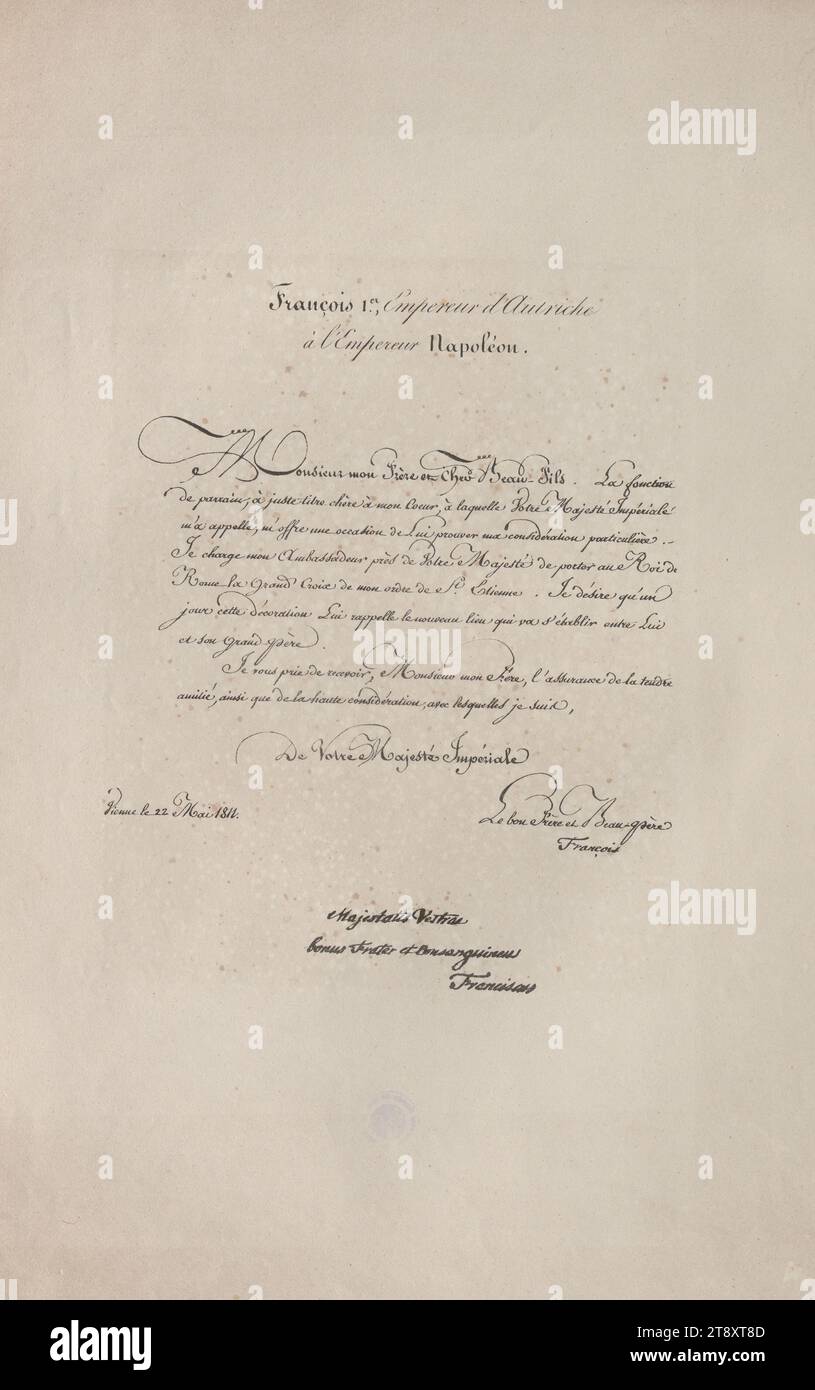 François 1.er, Empereur d'Autriche
à l'Empereur Napoléon.
Monsieur mon Frère et Cher Beau-Fils. La fonction
de parrain, à juste titre chère à mon Coeur, à laquelle Votre Majesté Impériale
m'a appellé, m'offre une occasion de Lui prouver ma considération particulière. –
Je charge mon Ambassadeur près de Votre Majesté de porter au Roi de
Rome la Grand Croix de mon ordre de St. Etienne. Je désire qu'un
jour cette décoration Lui rappelle le nouveau lien qui va s'établir entre Lui
et son Grand père.
Je vous prie de recevoir, Monsieur mon Frère, l'assurance de la tendre
amitié, ainsi que de la haute considération, avec lesquelles je suis,
De Votre Majesté Impériale
Vienne le 22 Mai 1811.
Le bon Frère et Beau-père
François
Majestatis Vestrae
bonus Frater et Consanguineus
Franciscus
alamy
alamy
alamy
Image ID: 2T8XT8D
www.alamy.com